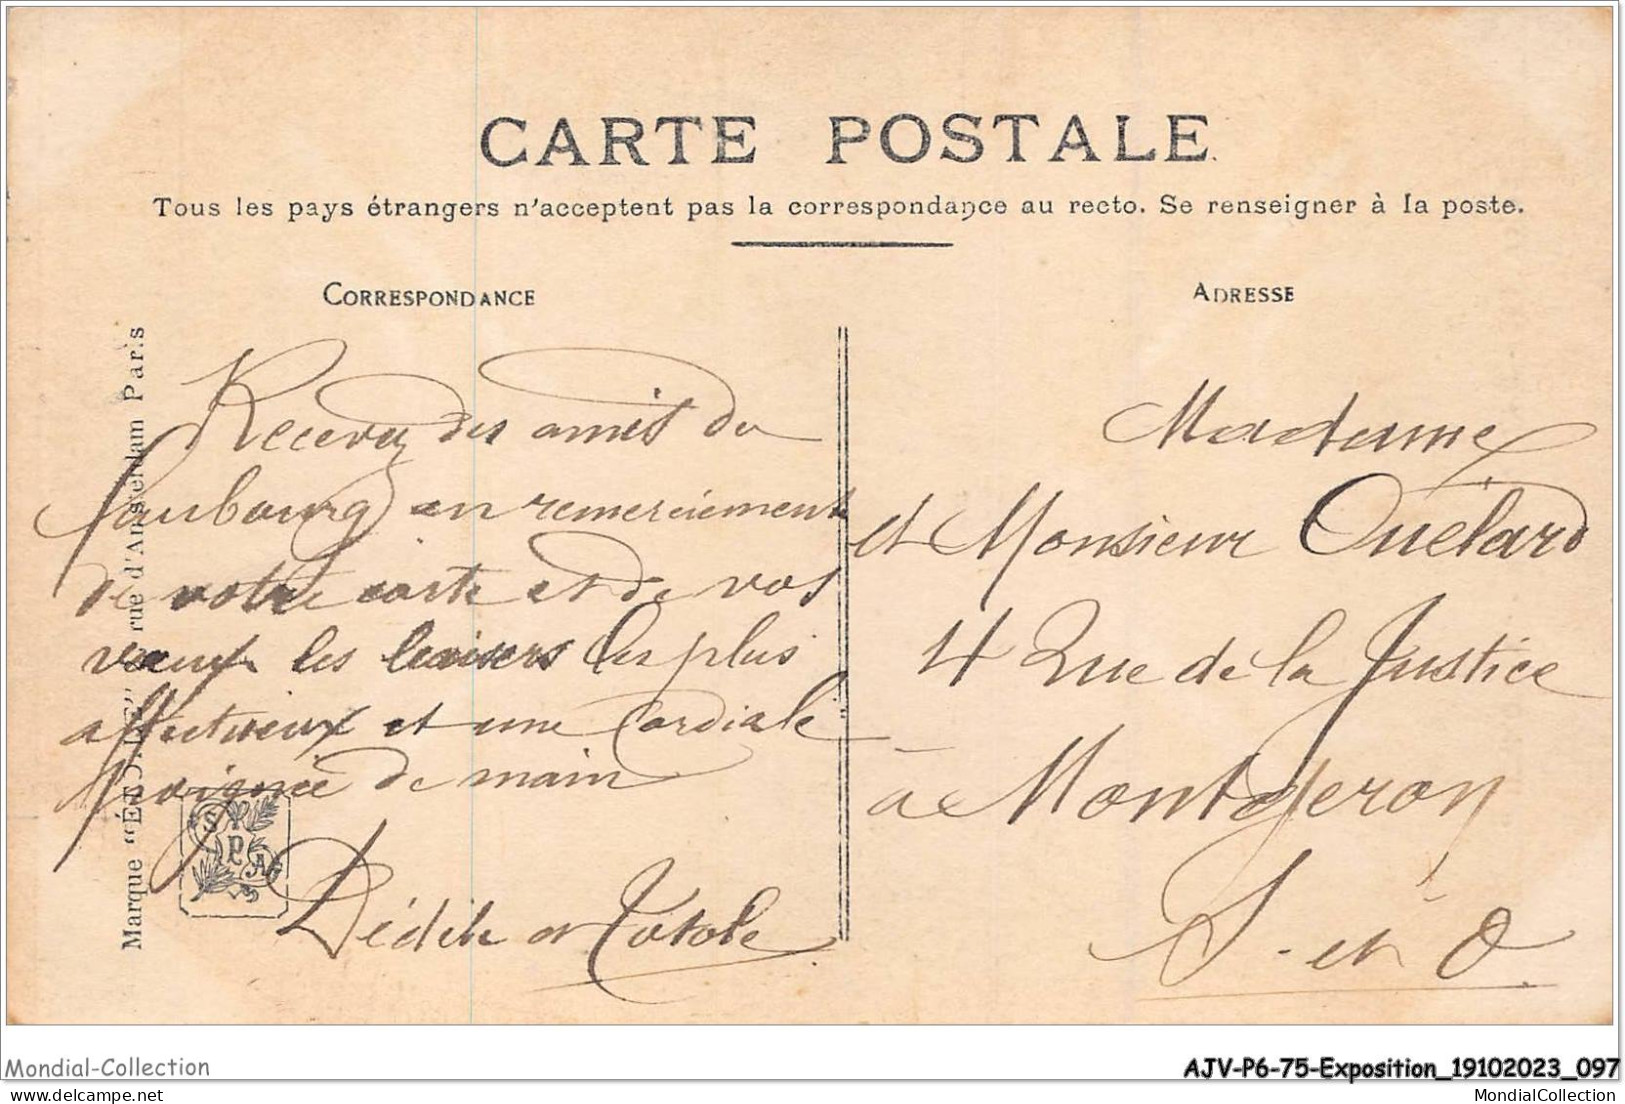 CARTE POSTALE
Tous les pays étrangers n'acceptent pas la correspondance au recto. Se renseigner à la poste.
CORRESPONDANCE
Recevez des amis du
faubourg en remerciement
de votre carte et de vos
vœux les baisers les plus
affectueux et une cordiale
poignée de main
Dédèle et Totole
Marque "ÉTOILE" rue d'Amsterdam Paris
S P A
ADRESSE
Madame
et Monsieur Ouélard
4 Rue de la Justice
à Montgeron
S. et O.
Mondial-Collection
AJV-P6-75-Exposition_19102023_097
MondialCollection